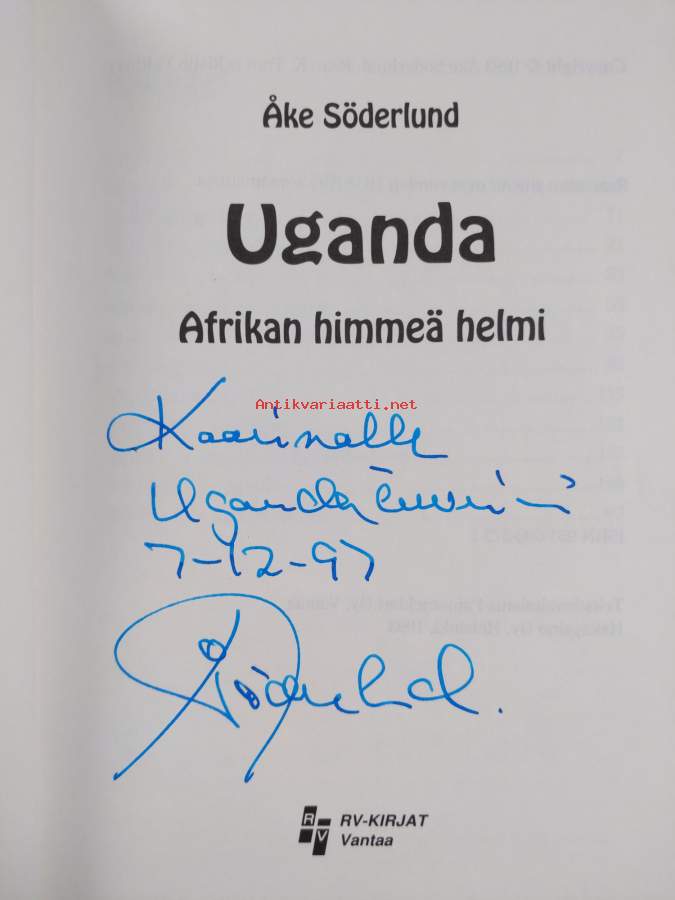 Åke Söderlund
Uganda
Afrikan himmeä helmi
Antikvariaatti.net
Kaarinalle
Uganda
7-12-97
Söderlund.
RV
RV-KIRJAT
Vantaa